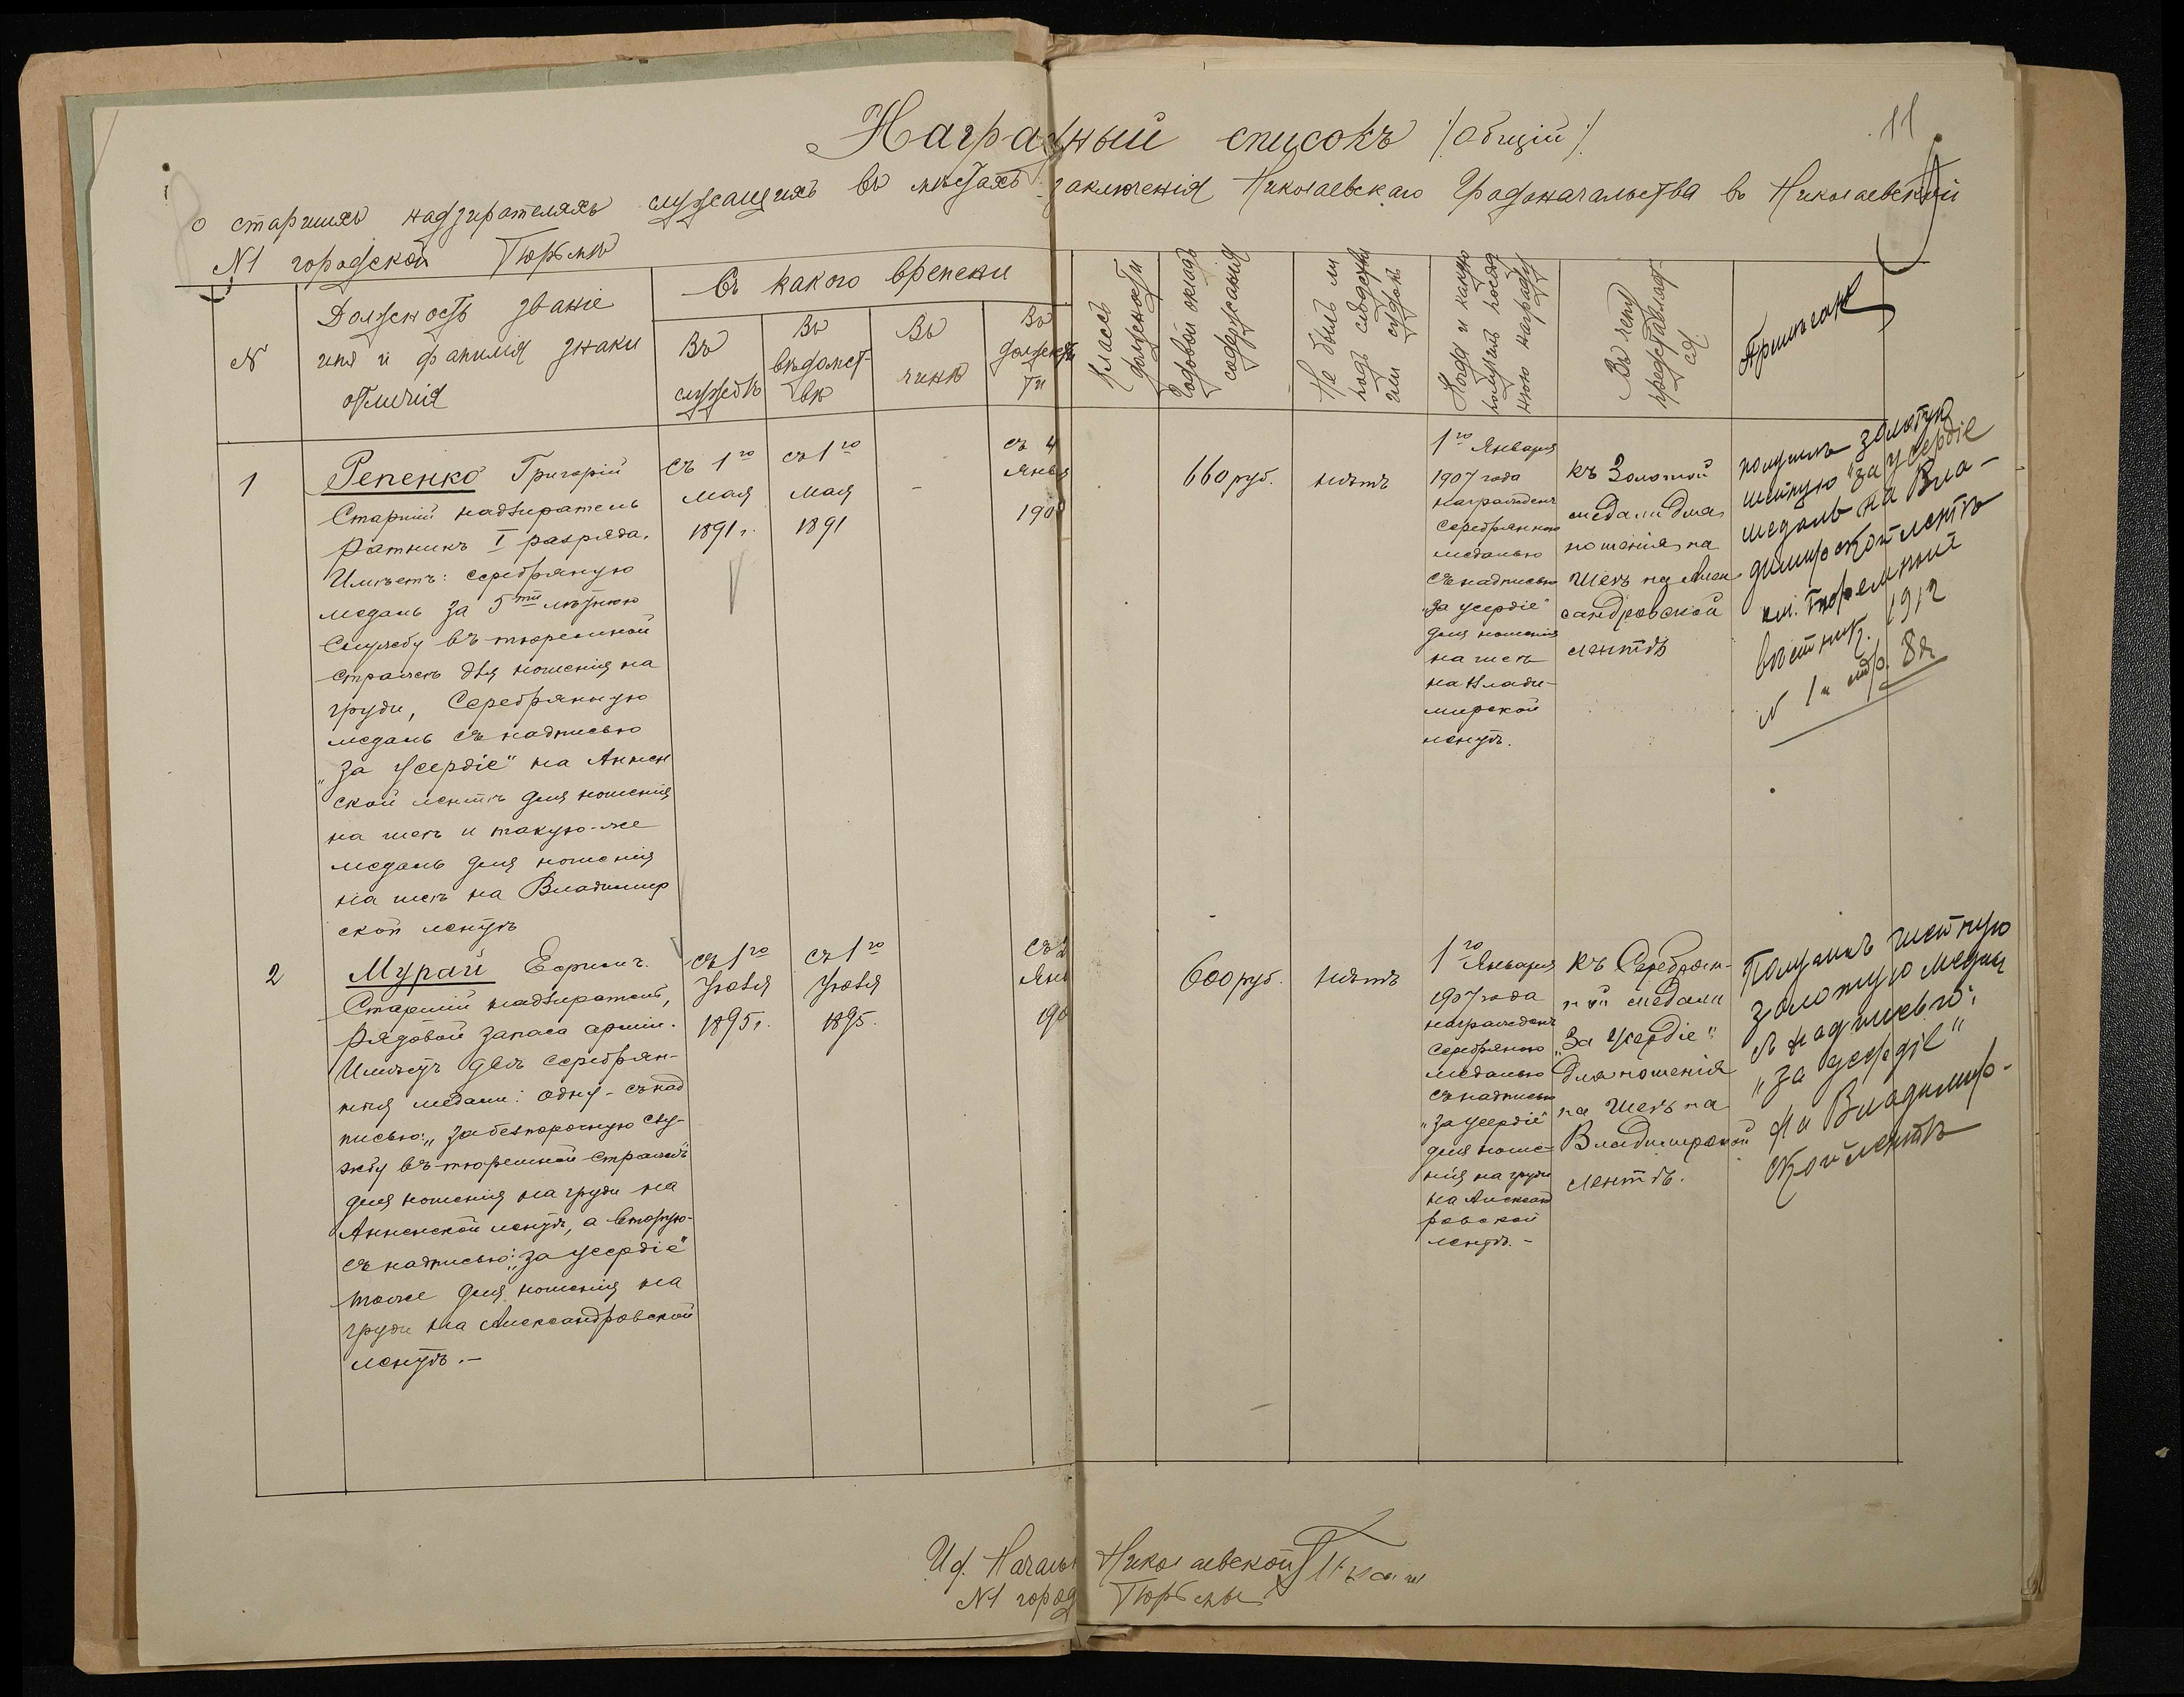 11
Наградный списокъ /общій/
о старшихъ надзирателяхъ служащихъ въ мѣстахъ заключенія Николаевскаго Градоначальства въ Николаевской
№1 городской Тюрьмѣ
№
Должность званіе
имя и фамилія знаки
отличія
Съ какого времени
Въ
службѣ
Въ
вѣдомст-
вѣ
Въ
чинѣ
Въ
должнос
ти
Классъ
должности
Годовой окладъ
содержанія
Не былъ ли
подъ слѣдств
или судомъ
Когда и какую
получилъ послѣд
нюю награду
Къ чему
представляет-
ся
Примѣчан
1
Репенко Григорій
Старшій надзиратель
Ратникъ I разряда.
Имѣетъ: серебряную
медаль за 5ти лѣтнюю
Службу въ тюремной
стражѣ для ношенія на
груди, Серебрянную
медаль съ надписью
„За Усердіе" на Аннен
ской лентѣ для ношенія
на шеѣ и такую-же
медаль для ношенія
на шеѣ на Владимир
ской лентѣ
съ 1го
мая
1891 г.
съ 1го
мая
1891
-
съ 4
Январ
190
660 руб.
нѣтъ
1го Января
1907 года
награжденъ
серебрянною
медалью
съ надписью
„за усердіе"
для ношенія
на шеѣ
на Влади-
мирской
лентѣ.
къ Золотой
медали для
ношенія на
шеѣ на Алек
сандровской
лентѣ
получилъ золотую
шейную "за усердіе
медаль на Вла-
димирской лентѣ
см. Тюремный
вѣстник. 1912
№ 1й стр. 8я
2
Мурай Ефимъ.
Старшій надзиратель,
Рядовой запаса арміи.
Имѣетъ двѣ серебрян-
ныя медали: одну - съ над
писью: „за безпорочную слу-
жбу въ тюремной стражѣ"
для ношенія на груди на
Анненской лентѣ, а вторую-
съ надписью: „за усердіе"
тоже для ношенія на
груди на Александровской
лентѣ. -
съ 1го
1895 г.
съ 1го
1895.
съ 2
Янв
190
600 руб.
нѣтъ
1го Января
1907 года
награжденъ
серебряною
медалью
съ надписью
"за усердіе"
для ноше-
нія на груди
на Александ
ровской
лентѣ. -
къ Серебрян-
ной медали
„За Усердіе"
для ношенія
на шеѣ на
Владимирской
лентѣ.
Получилъ шейную
золотую медаль
съ надписью:
„за усердіе"
на Владимир-
ской лентѣ
И. д. Начальн Николаевской
№1 город Тюрьмы